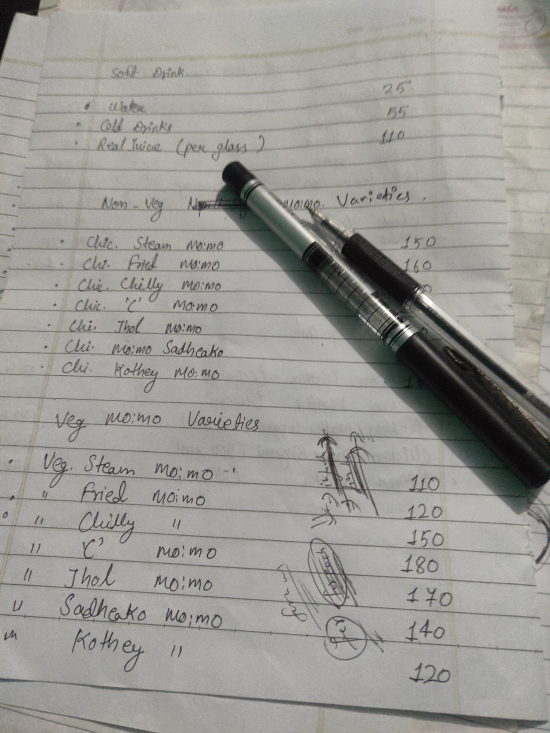 Soft Drink
• Water 25
• Cold Drinks 55
• Real Juice (per glass) 110
Non-Veg mo:mo. Varieties.
• Chic. Steam mo:mo 150
• Chi. Fried mo:mo 160
• Chic. Chilly mo:mo
• Chi. 'C' mo:mo
• Chi. Jhol mo:mo
• Chi. mo:mo Sadheako
• Chi. Kothey mo:mo
Veg mo:mo Varieties
• Veg. Steam mo:mo 110
• " Fried mo:mo 120
• " Chilly " 150
" 'C' mo:mo 180
" Jhol mo:mo 170
" Sadheako mo:mo 140
" Kothey " 120